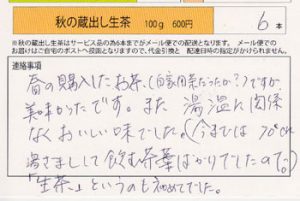 秋の蔵出し生茶 100g 600円 6本
※秋の蔵出し生茶はサービス品の為6本までがメール便での配送となります。 メール便での
お届けはご自宅のポストへ投函となりますので、代金引換と 配達日時の指定がかけられません。
連絡事項
春の購入したお茶、(自家用茶だったか?)ですが、
美味かったです。また 湯温に関係
なくおいしい味でした。(今までは 70℃
湯さまして飲む茶葉ばかりでしたので。)
「生茶」というのも初めてでした。